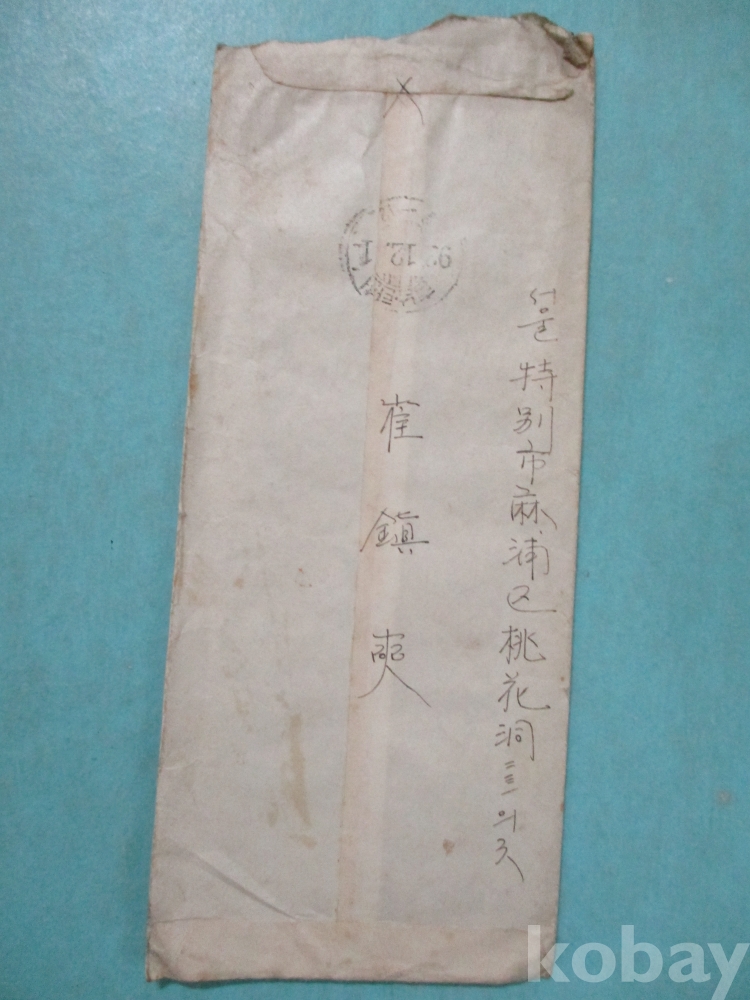 서울 特別市 麻浦区 桃花洞 三三의
崔鎭奭
12. 1
kobay